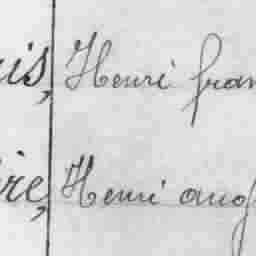 is, Henri fran
re, Henri aug